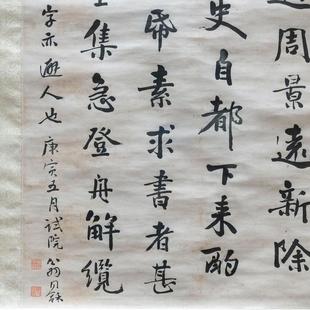 周景遠新除
史自都下来酌
帋素求書者甚
集急登舟解纜
字亦避人也 庚寅五月試院